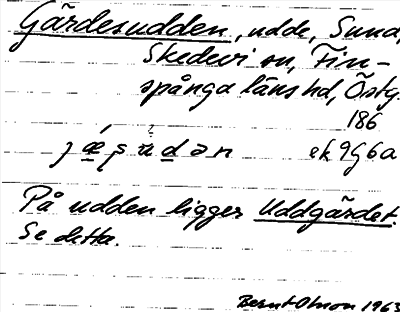 Gärdesudden, udde, Sund,
Skedevi sn, Fin-
spånga läns hd, Östg.
186
ek 9G6a
På udden ligger Uddgärdet.
Se detta.
1963